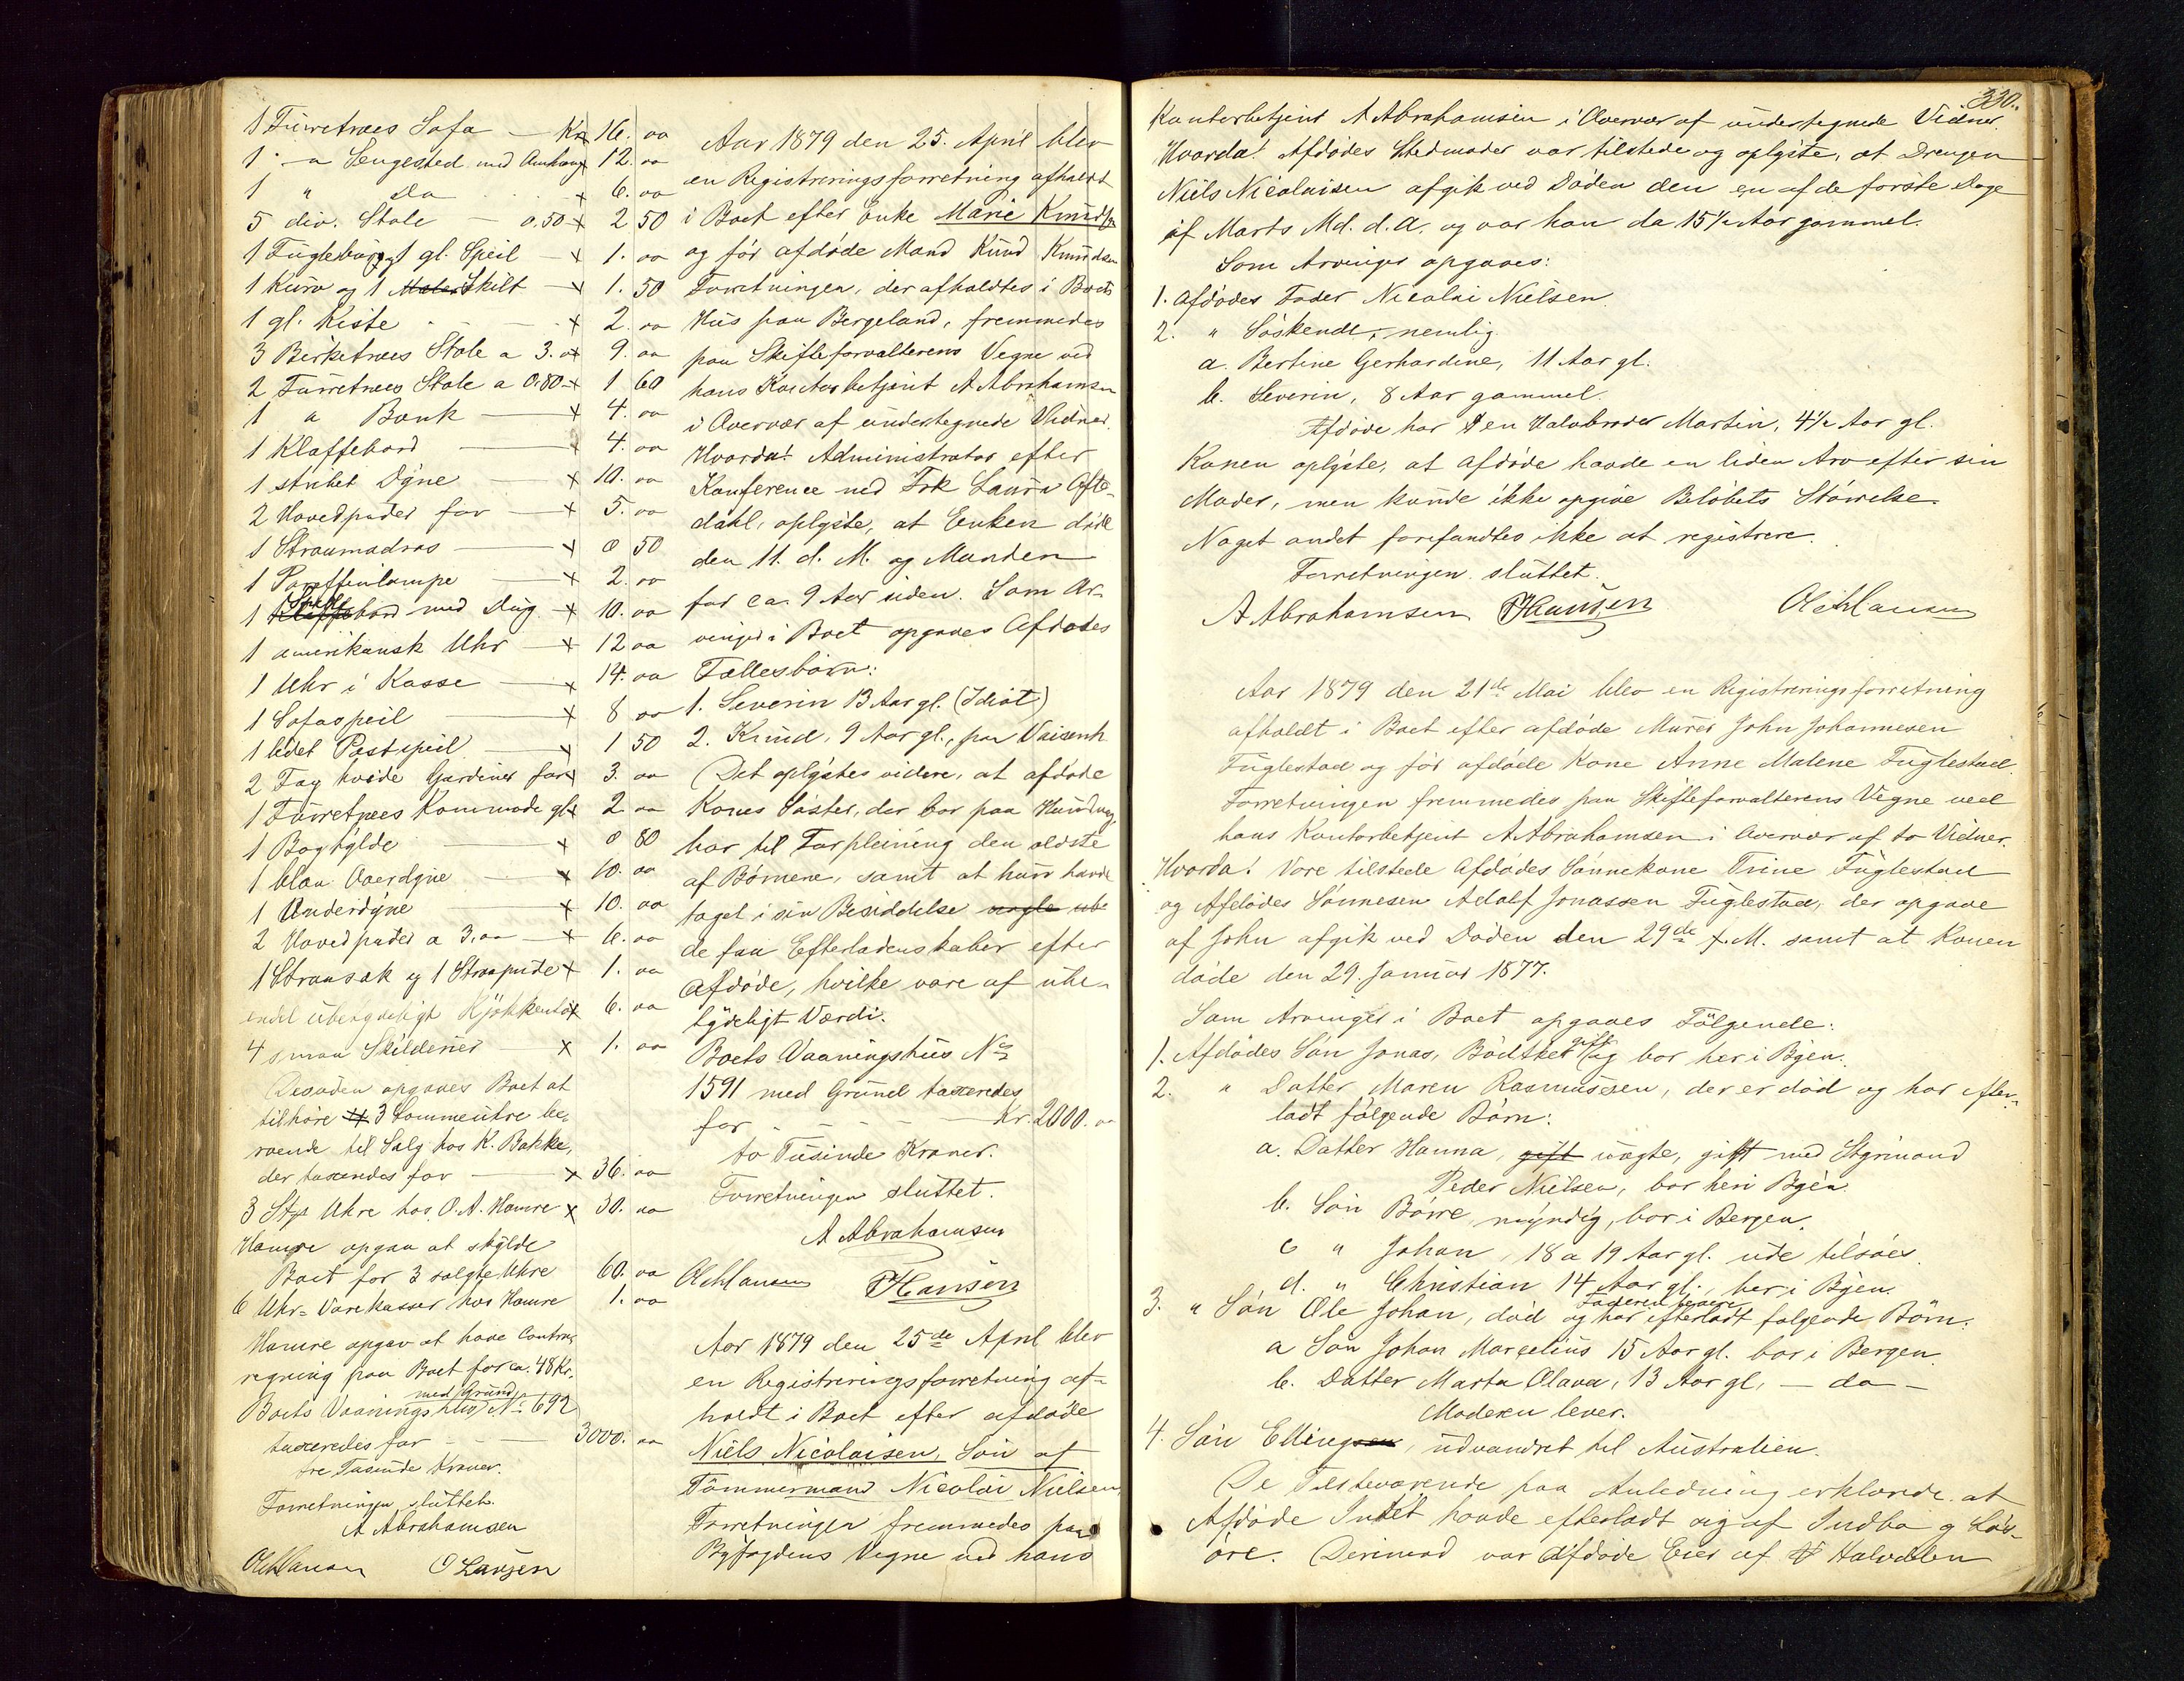 1 Fürretræes Sofa — Kr 16. oo
1 " a Sengested med Omhang x 12. oo
1 " Do x 6. oo
5 div. Stole — 0,50 x 2 50
1 Fuglebuur og 1 gl. Speil — x 1. oo
1 Kurv og 1 Maler Skilt — x 1. 50
1 gl. Kiste x 2. oo
3 Birketræes Stole a 3. oo x 9. oo
2 Fürretræes Stole a 0,80 x 1 60
1 a Bænk — x 4. oo
1 Klaffebord — x 4. oo
1 stribet Dyne — x 10. oo
2 Hovedpuder for — x 5. oo
1 Straamadras — x 0 50
1 Paraffinlampe — x 2. oo
1 Klaffebord med Dug x 10. oo
1 amerikansk Uhr — x 12 oo
1 Uhr i Kasse — x 14. oo
1 Sofaspeil — x 8 oo
1 lidet Postspeil — x 1 50
2 Fag hvide Gardiner for x 3. oo
1 Fürretræes Kommode gl x 2 oo
1 Boghylde — x 0 80
1 blaa Overdyne — x 10. oo
1 Underdyne — x 10. oo
2 Hovedpuder a 3,oo — x 6. oo
1 Straasæk og 1 Straapude x 1. oo
endel ubetydeligt Kjøkkentøi x 6. oo
4 smaa Skilderier — x 1. oo
Desuden opgaves Boet at
tilhøre 3 Lommeuhre be-
roende til Salg hos K. Bakke,
der taxeredes for — x 36. oo
3 Stk Uhre hos O. A. Hamre x 30. oo
Hamre opgav at skylde
Boet for 3 solgte Uhre 60. oo
6 Uhr-Varekasser hos Hamre 1. oo
Hamre opgav at have Contra-
regning paa Boet for ca. 48 Kr.
med Grund
Boets Vaaningshus No 692
taxeredes for — 3000. oo
tre Tusinde Kroner.
Forretningen sluttet.
A Abrahamsen
OChHansen O Larsen
Aar 1879 den 25. April blev
en Registreringsforretning afholdt
i Boet efter Enke Marie Knudsen
og før afdøde Mand Knud Knudsen
Forretningen, der afholdtes i Boets
Hus paa Bergeland, fremmedes
paa Skifteforvalterens Vegne ved
hans Kontorbetjent A Abrahamsen
i Overvær af undertegnede Vidner.
Hvorda! Administrator efter
Konference med Frk Laura Ofte-
dahl, oplyste, at Enken døde
den 11. d. M. og Manden
for ca. 9 Aar siden. Som Ar-
vinger i Boet opgaves Afdødes
Fællesbørn:
1. Severin 13 Aar gl. (Idiot)
2. Knud, 9 Aar gl., paa Vaisenh
Det oplystes videre, at afdøde
Kones Søster, der bor paa Hundvaag,
har til Forpleining den ældste
af Børnene, samt at hun havde
taget i sin Besiddelse nogle ube
de faa Efterladenskaber efter
Afdøde, hvilke vare af ube-
tydeligt Værdi.
Boets Vaaningshus No
1591 med Grund taxeredes
for — Kr. 2000. oo
to Tusinde Kroner.
Forretningen sluttet.
A Abrahamsen
OChHansen PHansen
Aar 1879 den 25de April blev
en Registreringsforretning af-
holdt i Boet efter afdøde
Niels Nicolaisen, Søn af
Tømmermand Nicolai Nielsen
Forretningen fremmedes paa
Byfogdens Vegne ved hans
330.
Kontorbetjent A Abrahamsen i Overvær af undertegnede Vidner.
Hvorda! Afdødes Stedmoder var tilstede og oplyste, at Drengen
Niels Nicolaisen afgik ved Døden den en af de første Dage
af Marts Md. d. A. og var han da 15½ Aar gammel.
Som Arvinger opgaves:
1. Afdødes Fader Nicolai Nielsen
2. " Søskende, nemlig
a. Bertine Gerhardine, 11 Aar gl.
b. Severin, 8 Aar gammel.
Afdøde har 1 en Halvbroder Martin, 4½ Aar gl.
Konen oplyste, at afdøde havde en liden Arv efter sin
Moder, men kunde ikke opgive Beløbets Størrelse.
Noget andet forefandtes ikke at registrere.
Forretningen sluttet.
A Abrahamsen PHansen OChHansen
Aar 1879 den 21de Mai blev en Registreringsforretning
afholdt i Boet efter afdøde Murer John Johannesen
Fuglestad og før afdøde Kone Anne Malene Fuglestad.
Forretningen fremmedes paa Skifteforvalterens Vegne ved
hans Kontorbetjent A Abrahamsen i Overvær af to Vidner.
Hvorda! Vare tilstede Afdødes Sønnekone Trine Fuglestad
og Afdødes Sønnesøn Adolf Jonassen Fuglestad, der opgave
af John afgik ved Døden den 29de f. M. samt at Konen
døde den 29. Januar 1877.
Som Arvinger i Boet opgaves Følgende:
1. Afdødes Søn Jonas, Bødtker gift og bor her i Byen.
2. " Datter Maren Rasmussen, der er død og har efter-
ladt følgende Børn:
a. Datter Hanna, gift uægte, gift med Styrmand
Peder Nielsen, bor her i Byen
b. Søn Børre myndig, bor i Bergen.
c " Johan, 18 a 19 Aar gl. ude tilsøes
d. " Christian 14 Aar gl., her i Byen.
Faderen lever
3. " Søn Ole Johan, død og har efterladt følgende Børn:
a Søn Johan Marcelius 15 Aar gl. bor i Bergen
b. Datter Marta Olava, 13 Aar gl, — do —
Moderen lever.
4. Søn Ellingsen, udvandret til Australien.
De Tilstedeværende paa Anledning erklærede at
Afdøde Intet havde efterladt sig af Indbo og Løs-
øre. Derimod var Afdøde Eier af Halvdelen